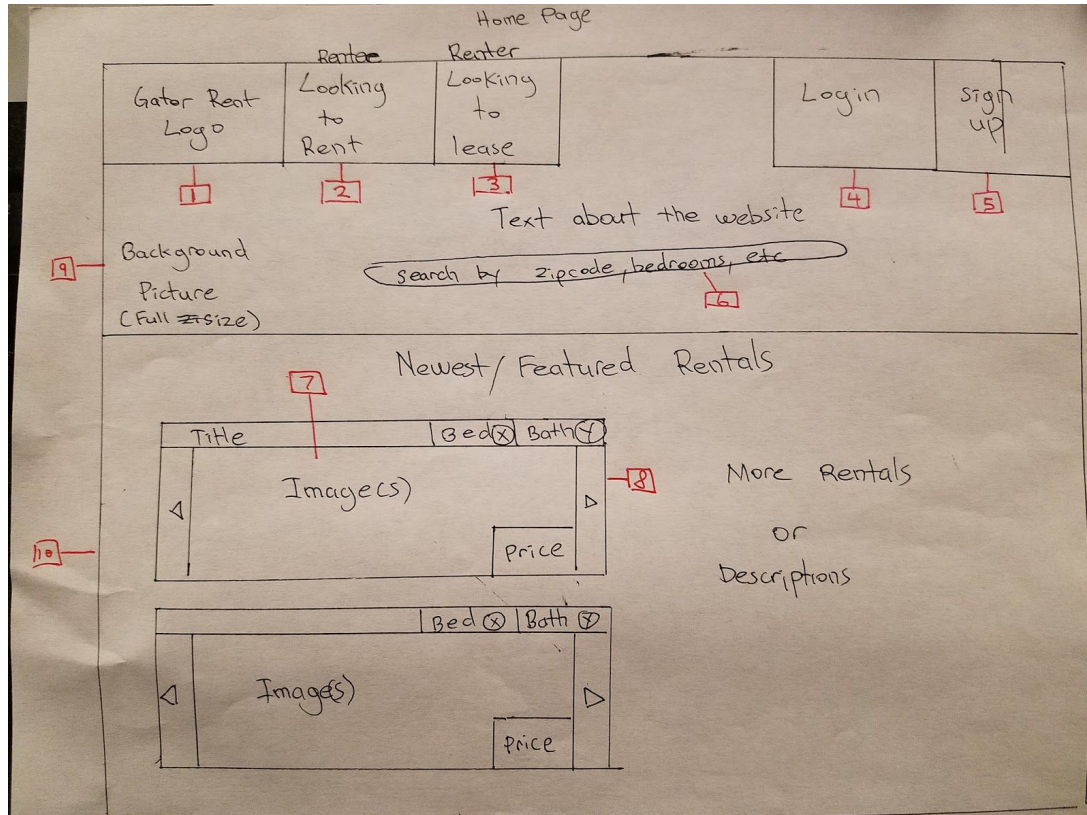 Home Page
Rentee
Renter
Gator Rent
Logo
Looking
to
Rent
Looking
to
lease
Login
sign
up
1
2
3
4
5
Text about the website
9
Background
Picture
(Full size)
search by zipcode, bedrooms, etc
6
Newest/Featured Rentals
7
Title Bed X Bath Y
Image(s)
8
Price
More Rentals
or
Descriptions
10
Bed X Bath Y
Image(s)
Price